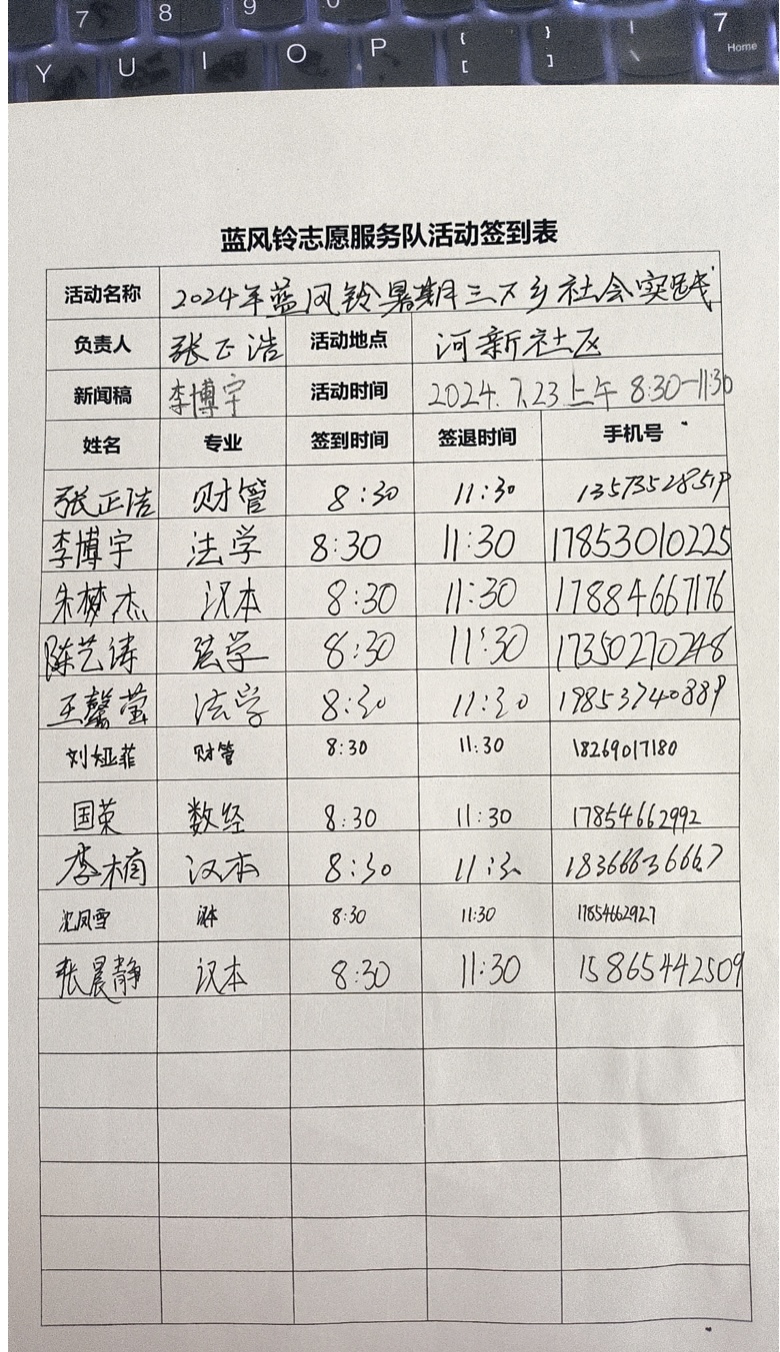 7 8 9 0 7
Home
Y U I O P { [ } ] | \
蓝风铃志愿服务队活动签到表
活动名称 2024年蓝风铃暑期三下乡社会实践
负责人 张正浩 活动地点 河新社区
新闻稿 李博宇 活动时间 2024.7.23上午 8:30-11:30
姓名 专业 签到时间 签退时间 手机号
张正浩 财管 8:30 11:30 13573528519
李博宇 法学 8:30 11:30 17853010225
朱梦杰 汉本 8:30 11:30 17884667176
陈艺涛 法学 8:30 11:30 17350270248
王馨莹 法学 8:30 11:30 19853740889
刘娅菲 财管 8:30 11:30 18269017180
国荣 数经 8:30 11:30 17854662992
李楠 汉本 8:30 11:30 18366636667
沈凤雪 汉本 8:30 11:30 17854662927
张晨静 汉本 8:30 11:30 15865442509